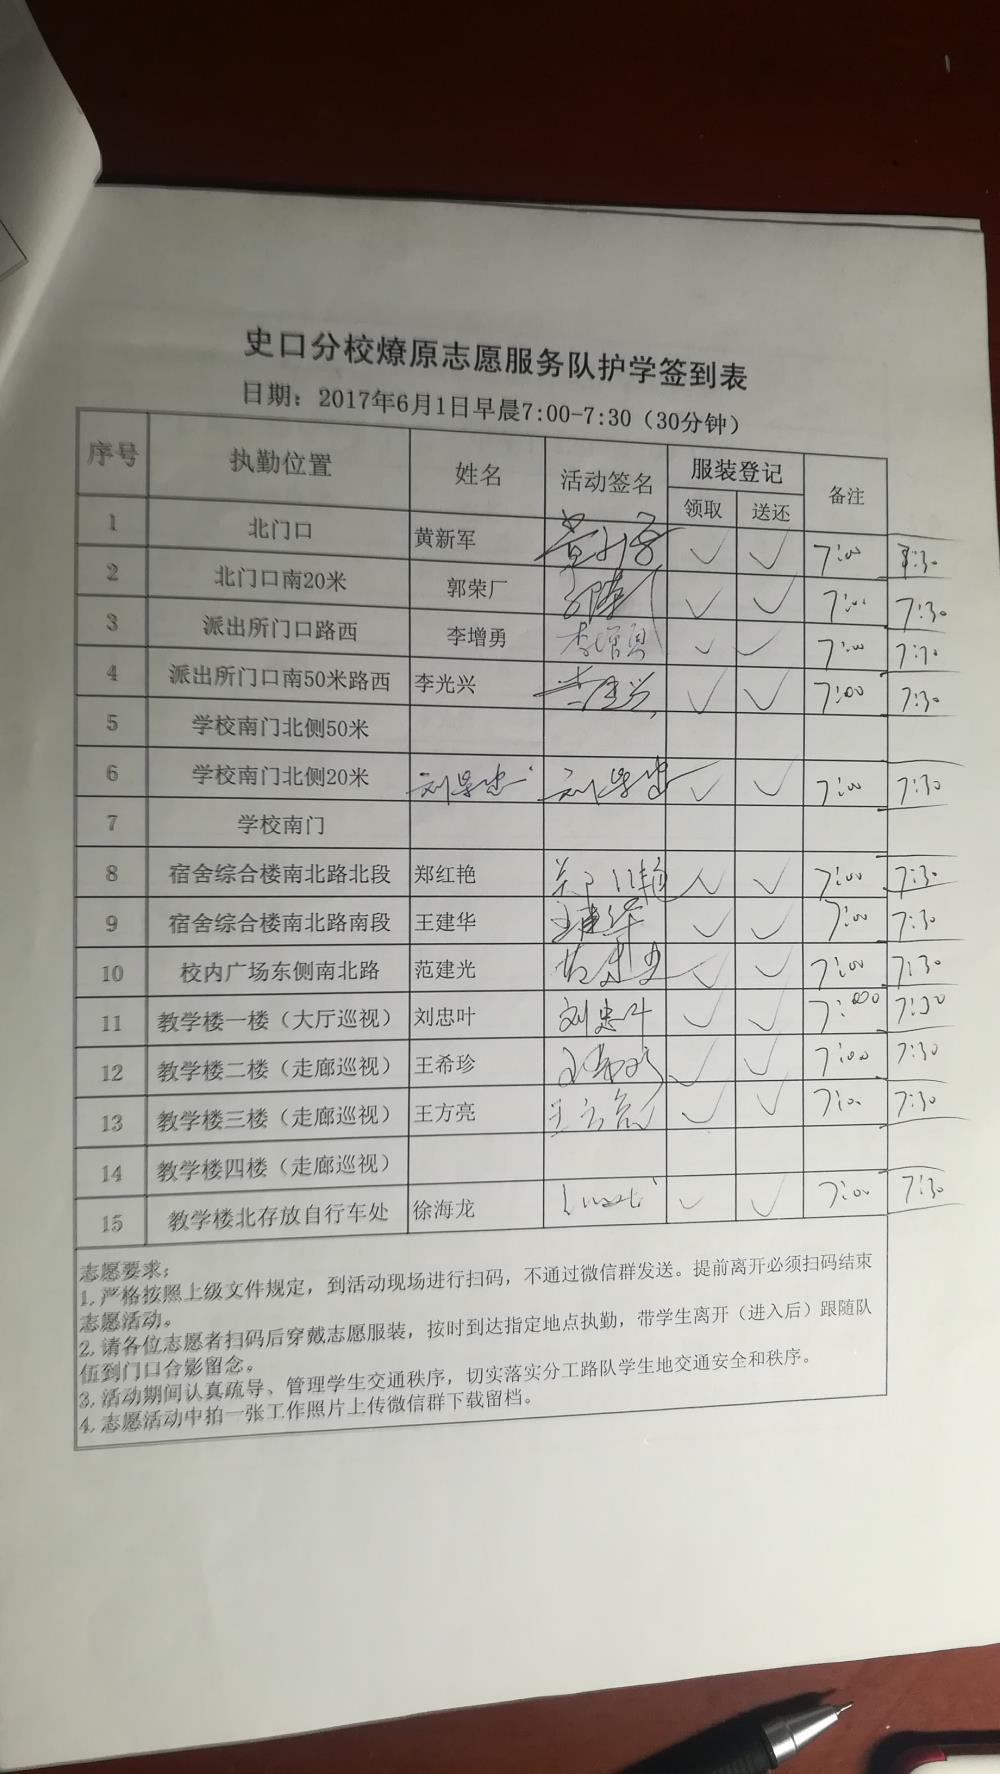 史口分校燎原志愿服务队护学签到表
日期：2017年6月1日早晨7:00-7:30（30分钟）
序号 执勤位置 姓名 活动签名 服装登记 备注
领取 送还
1 北门口 黄新军 ✓ ✓ 7:00
2 北门口南20米 郭荣厂 ✓ ✓ 7:00 7:30
3 派出所门口路西 李增勇 李增勇 ✓ ✓ 7:00 7:30
4 派出所门口南50米路西 李光兴 李光兴 ✓ ✓ 7:00 7:30
5 学校南门北侧50米
6 学校南门北侧20米 ✓ ✓ 7:00 7:30
7 学校南门
8 宿舍综合楼南北路北段 郑红艳 郑红艳 ✓ ✓ 7:00 7:30
9 宿舍综合楼南北路南段 王建华 王建华 ✓ ✓ 7:00 7:30
10 校内广场东侧南北路 范建光 ✓ ✓ 7:00 7:30
11 教学楼一楼（大厅巡视） 刘忠叶 刘忠叶 ✓ ✓ 7:30
12 教学楼二楼（走廊巡视） 王希珍 王希珍 ✓ ✓ 7:00 7:30
13 教学楼三楼（走廊巡视） 王方亮 王方亮 ✓ ✓ 7:00 7:30
14 教学楼四楼（走廊巡视）
15 教学楼北存放自行车处 徐海龙 ✓ ✓ 7:00 7:30
志愿要求：
1.严格按照上级文件规定，到活动现场进行扫码，不通过微信群发送。提前离开必须扫码结束
志愿活动。
2.请各位志愿者扫码后穿戴志愿服装，按时到达指定地点执勤，带学生离开（进入后）跟随队
伍到门口合影留念。
3.活动期间认真疏导、管理学生交通秩序，切实落实分工路队学生地交通安全和秩序。
4.志愿活动中拍一张工作照片上传微信群下载留档。